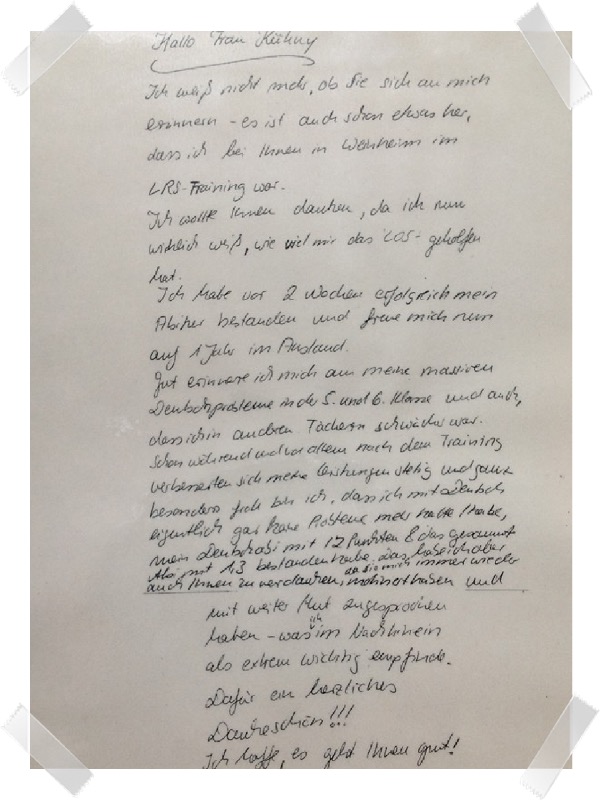 Hallo Frau Kühny
Ich weiß nicht mehr, ob Sie sich an mich
erinnern - es ist auch schon etwas her,
dass ich bei Ihnen in Weinheim im
LRS-Training war.
Ich wollte Ihnen danken, da ich nun
wirklich weiß, wie viel mir das LOS - geholfen
hat.
Ich habe vor 2 Wochen erfolgreich mein
Abitur bestanden und freue mich nun
auf 1 Jahr im Ausland.
Gut erinnere ich mich an meine massiven
Deutschprobleme in der 5. und 6. Klasse und auch,
dass ich in anderen Fächern schwächer war.
Schon während und vor allem nach dem Training
verbesserten sich meine Leistungen stetig und ganz
besonders froh bin ich, dass ich mit Deutsch
eigentlich gar keine Probleme mehr hatte / habe,
mein Deutschabi mit 12 Punkten & das gesamte
Abi mit 13 bestanden habe. Das habe ich aber
auch Ihnen zu verdanken, da sie mich immer wieder
und
mit weiter Mut zugesprochen
haben - was ich im Nachhinein
als extrem wichtig empfinde.
Dafür ein herzliches
Dankeschön!!!
Ich hoffe, es geht Ihnen gut!